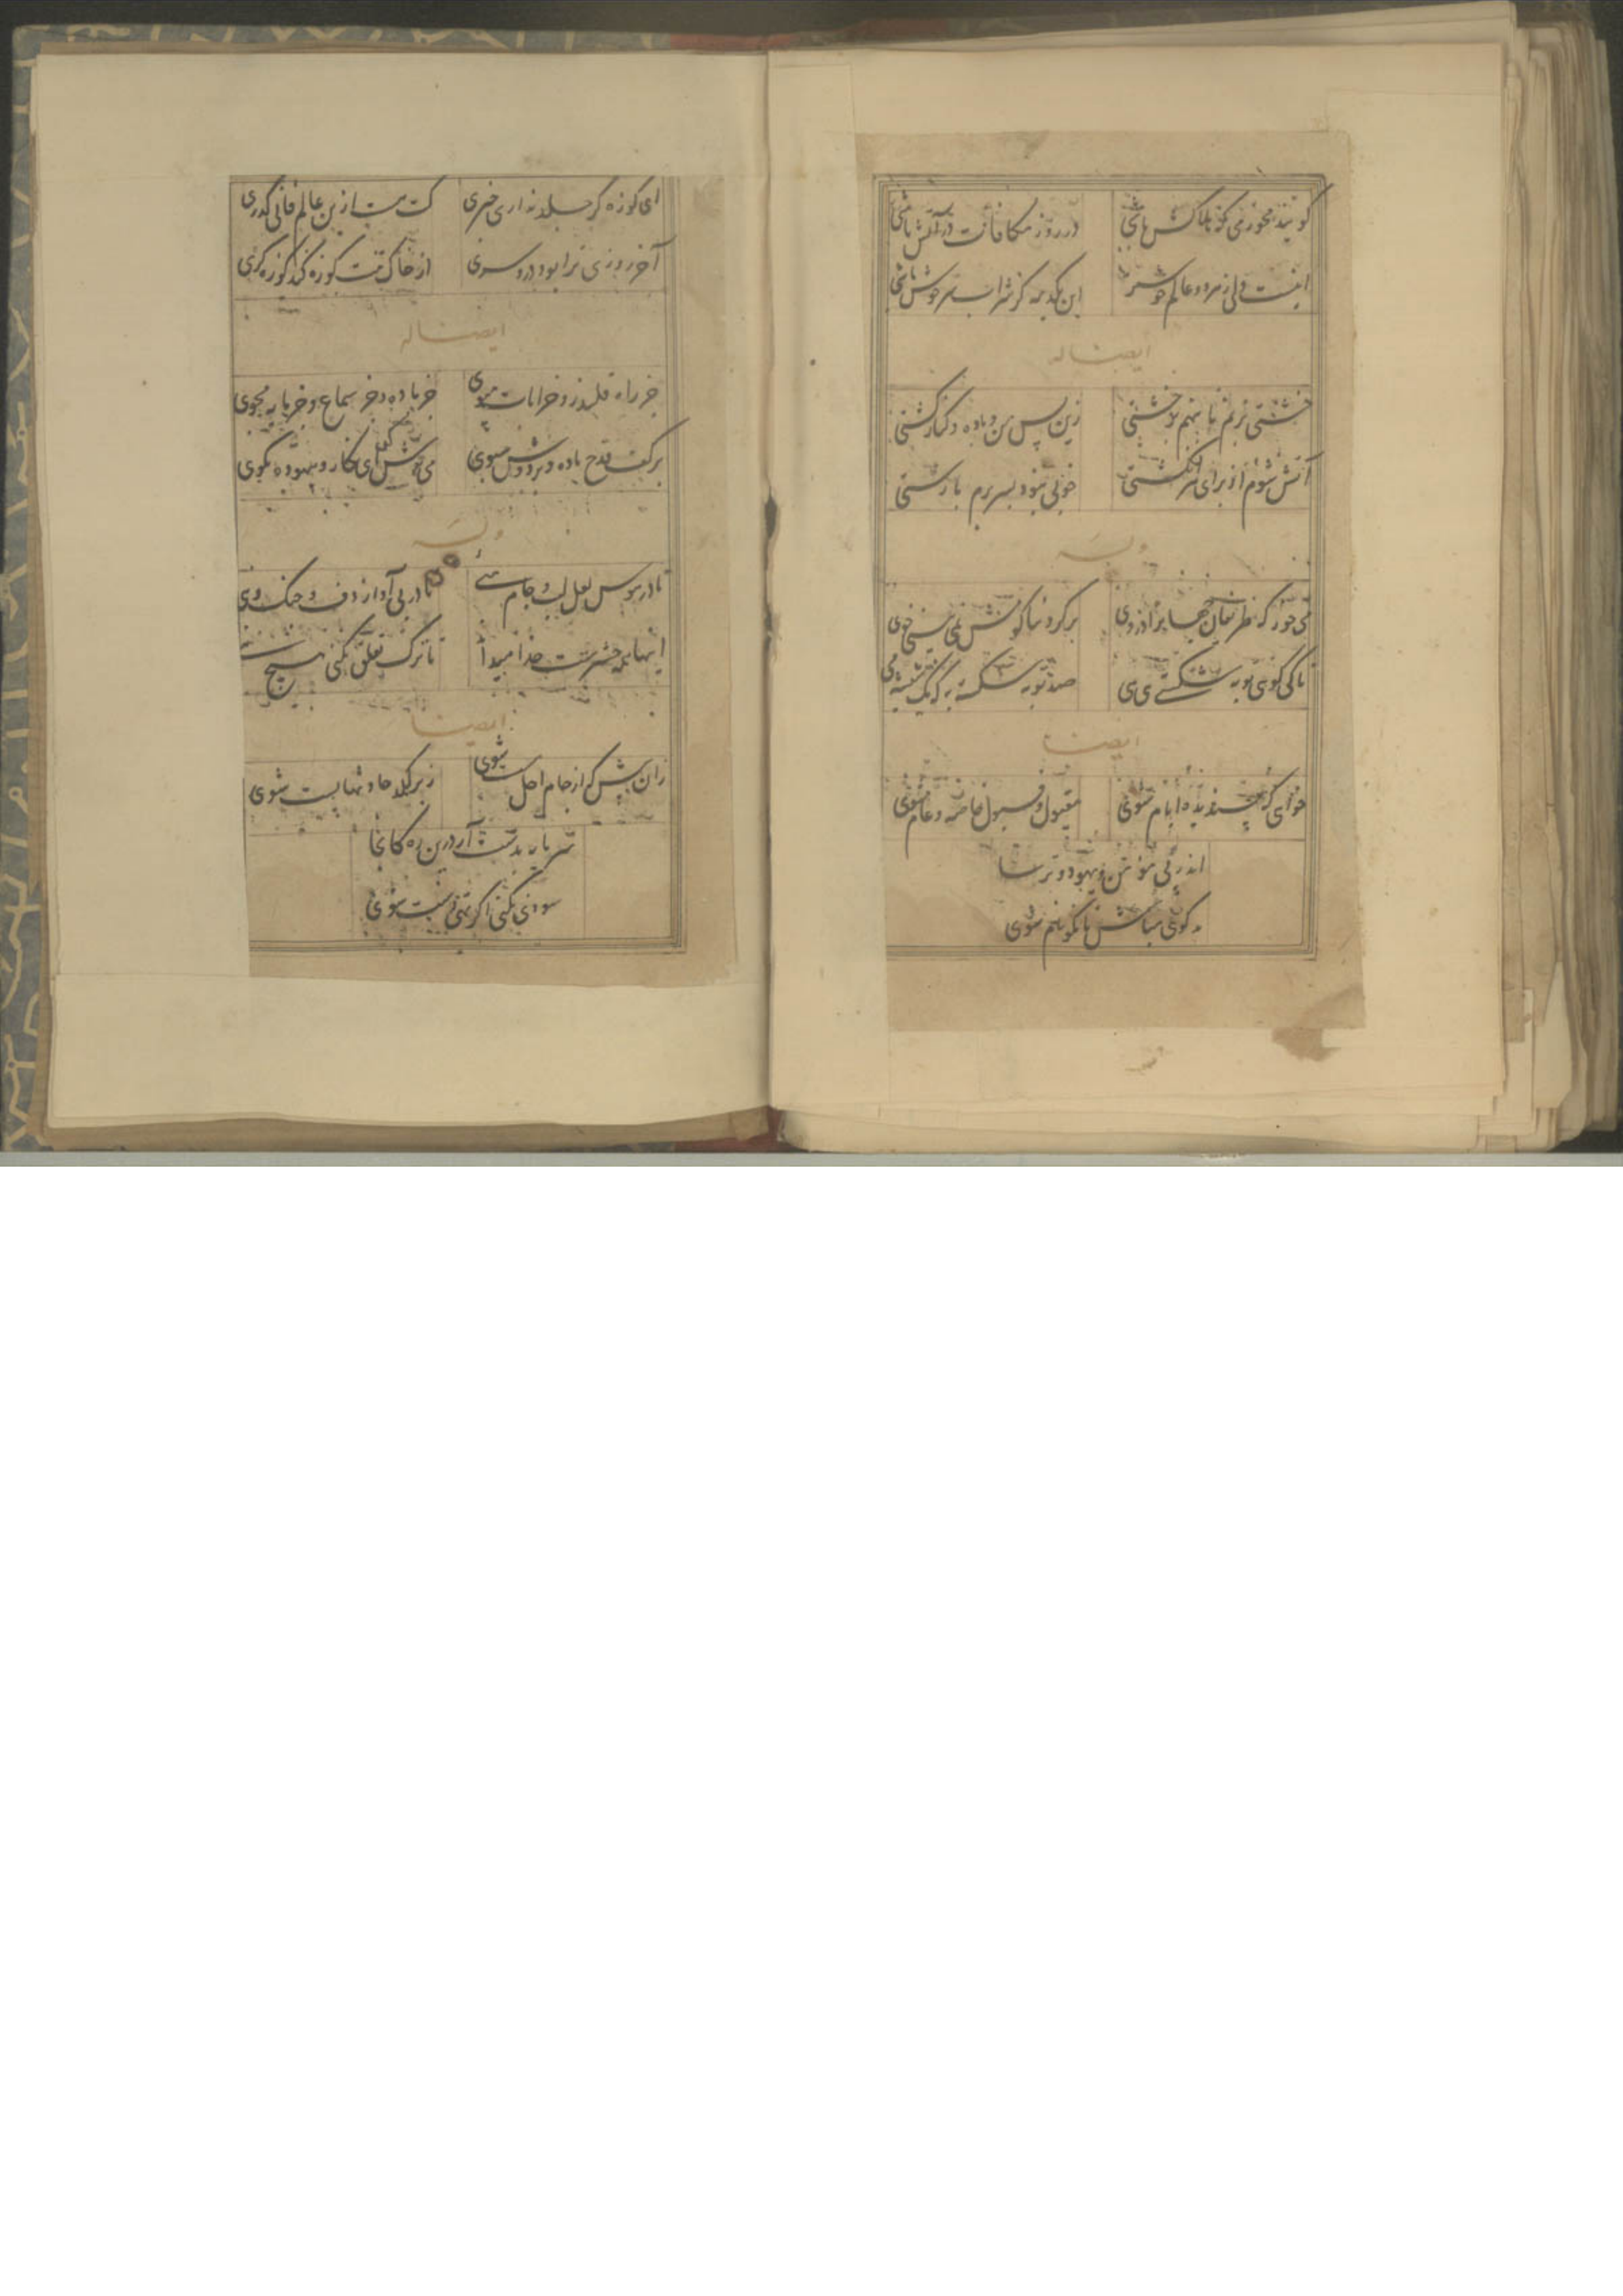 گویند مخور می که بلاکش باشی
در روز مکافات در آتش باشی
اینست ولی ز هر دو عالم خوشتر
این یکدمه کز شراب سرخوش باشی
ایضا له
خشتی نزنم تا ننهم بر خشتی
زین پس من و باده و کنار کشتی
آتش شوم از برای هر انگشتی
خوبی نبود بسر برم با زشتی
وله
بر گرد بناگوش
تا کی گوئی توبه شکستی
صد توبه شکسته به که یک شیشه می
ایضا
خواهی که پسندیده ایام شوی
مقبول و قبول خاصه و عام شوی
اندر پی مؤمن و یهود و ترسا
بد گوی مباش تا نکو نام شوی
ای کوزه گر جلد نداری خبری
کت هست ازین عالم فانی گذری
آخر روزی ترا بود درد سری
از خاک تنت کوزه کند کوزه گری
ایضا له
جز راه قلندر و خرابات مپوی
جز باده و جز سماع و جز یار مجوی
بر کف قدح باده و بر دوش سبوی
می نوش کن ای نگار و بیهوده مگوی
وله
تا در هوس لعل لب و جام میئی
تا در پی آواز دف و چنگ و نیی
اینها همه حشوست خدا میداند
تا ترک تعلق نکنی هیچ نیی
ایضا
زان پیش که از جام اجل مست شوی
زیر لگد حادثها پست شوی
سرمایه بدست آر درین ره کانجا
سودی نکنی اگر تهی دست شوی